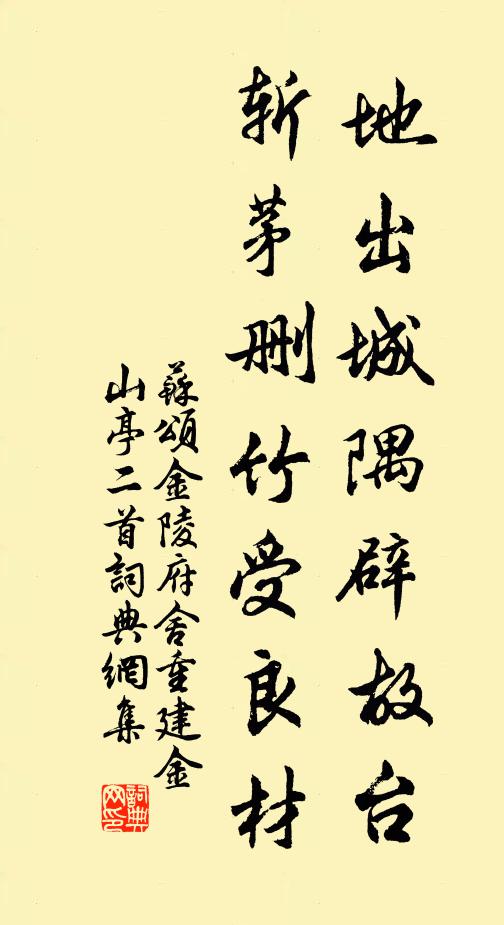 地出城隅辟故台
斩茅删竹受良材
蘇頌金陵府舍重建金
山亭二首詞典網集
詞典
网印